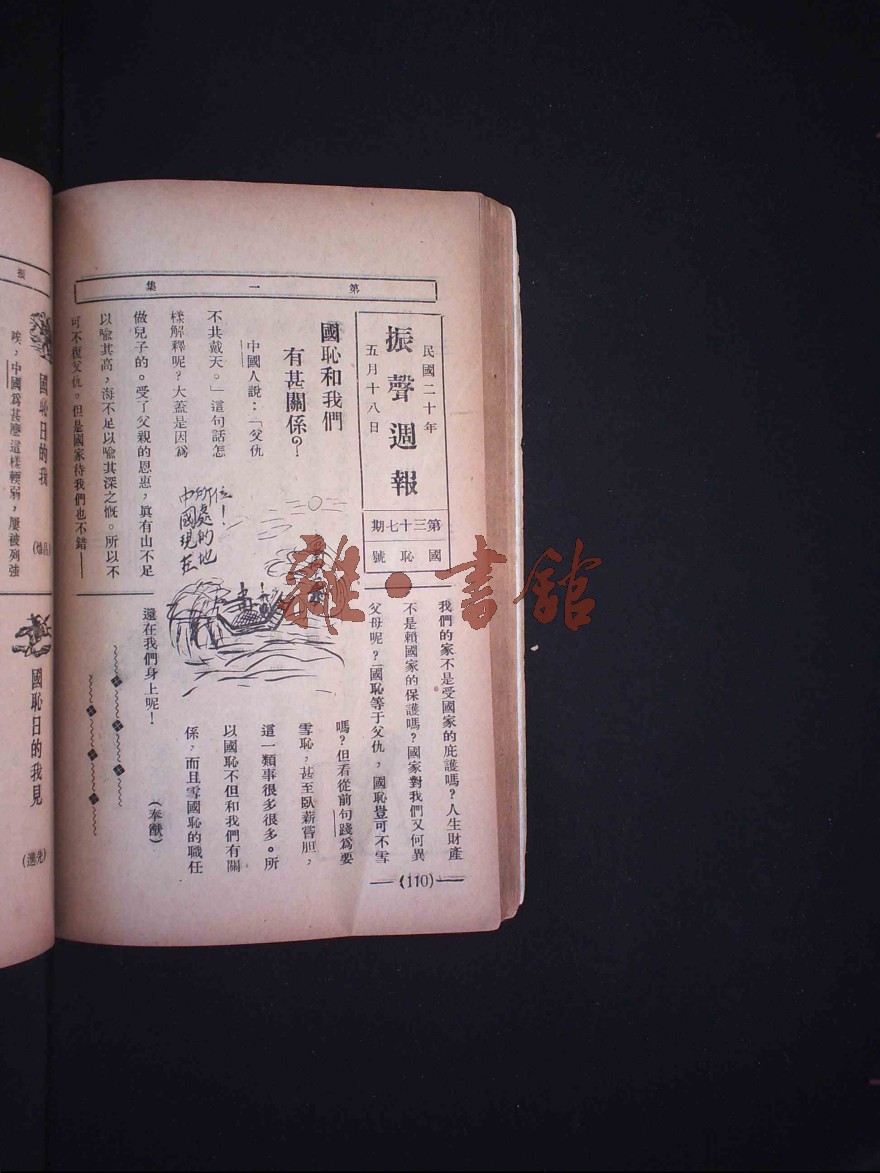 第一集
民國二十年
振聲週報
五月十八日
第三十七期
國恥號
國恥和我們
有甚關係？
中國人說：「父仇
不共戴天。」這句話怎
樣解釋呢？大蓋是因爲
做兒子的。受了父親的恩惠，眞有山不足
以喻其高，海不足以喻其深之慨。所以不
可不復父仇。但是國家待我們也不錯——
我們的家不是受國家的庇護嗎？人生財產
不是賴國家的保護嗎？國家對我們又何異
父母呢？國恥等于父仇，國恥豈可不雪
嗎？但看從前句踐爲要
雪恥，甚至臥薪嘗胆，
這一類事很多很多。所
以國恥不但和我們有關
係，而且雪國恥的職任
還在我們身上呢！
（奉猷）
中國現在
所處的地
位！
(110)
雜·書館
振
國恥日的我
唉，中國爲甚麼這樣輭弱，屢被列強
國恥日的我見
（先進）